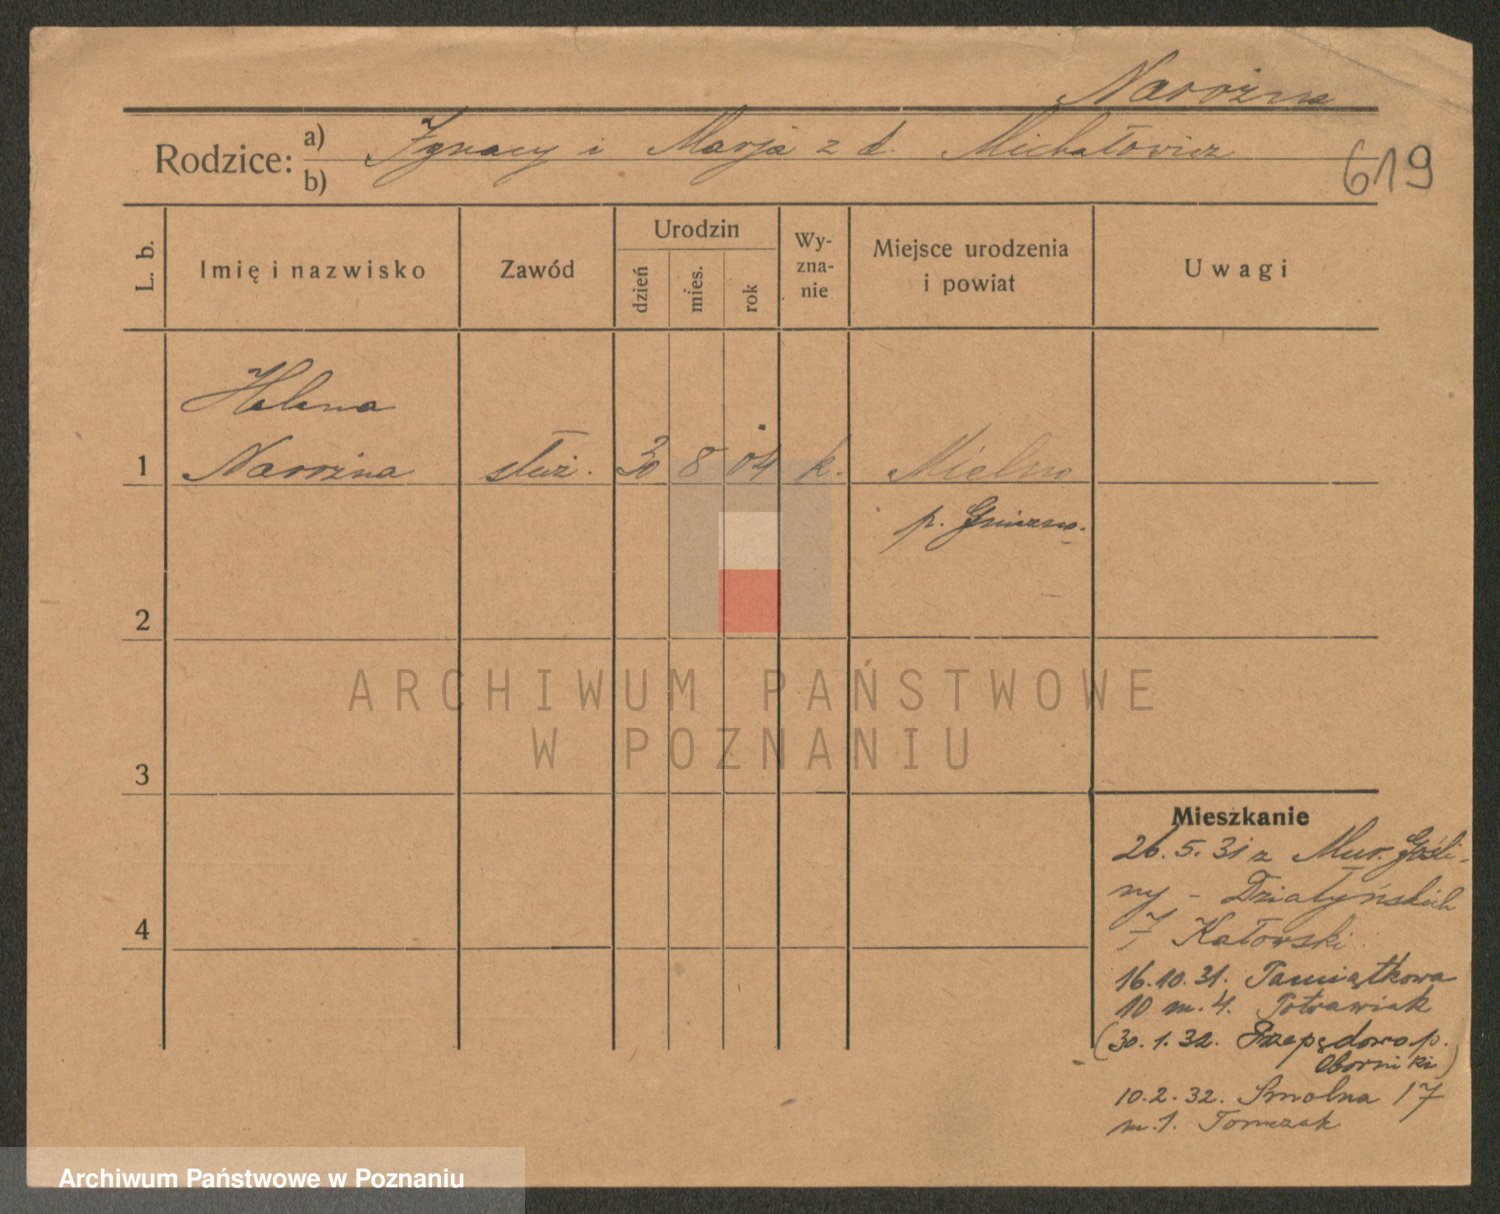 Narożna
Rodzice: a) Ignacy i Marja z d. Michałowicz
b)
619
L. b.
Imię i nazwisko
Zawód
Urodzin
dzień
mies.
rok
Wy-
zna-
nie
Miejsce urodzenia
i powiat
Uwagi
Helena
1 Narożna służ. 30 8 04 k. Mielno
p. Gniezno.
2
3
4
Mieszkanie
26.5.31 z Mur. Gośli-
ny - Działyńskich
7 Katowski
16.10.31. Pamiątkowa
10 m. 4. Potrawiak
(30.1.32. Przependowo p.
Oborniki)
10.2.32. Smolna 17
m.1. Tomczak
ARCHIWUM PAŃSTWOWE
W POZNANIU
Archiwum Państwowe w Poznaniu